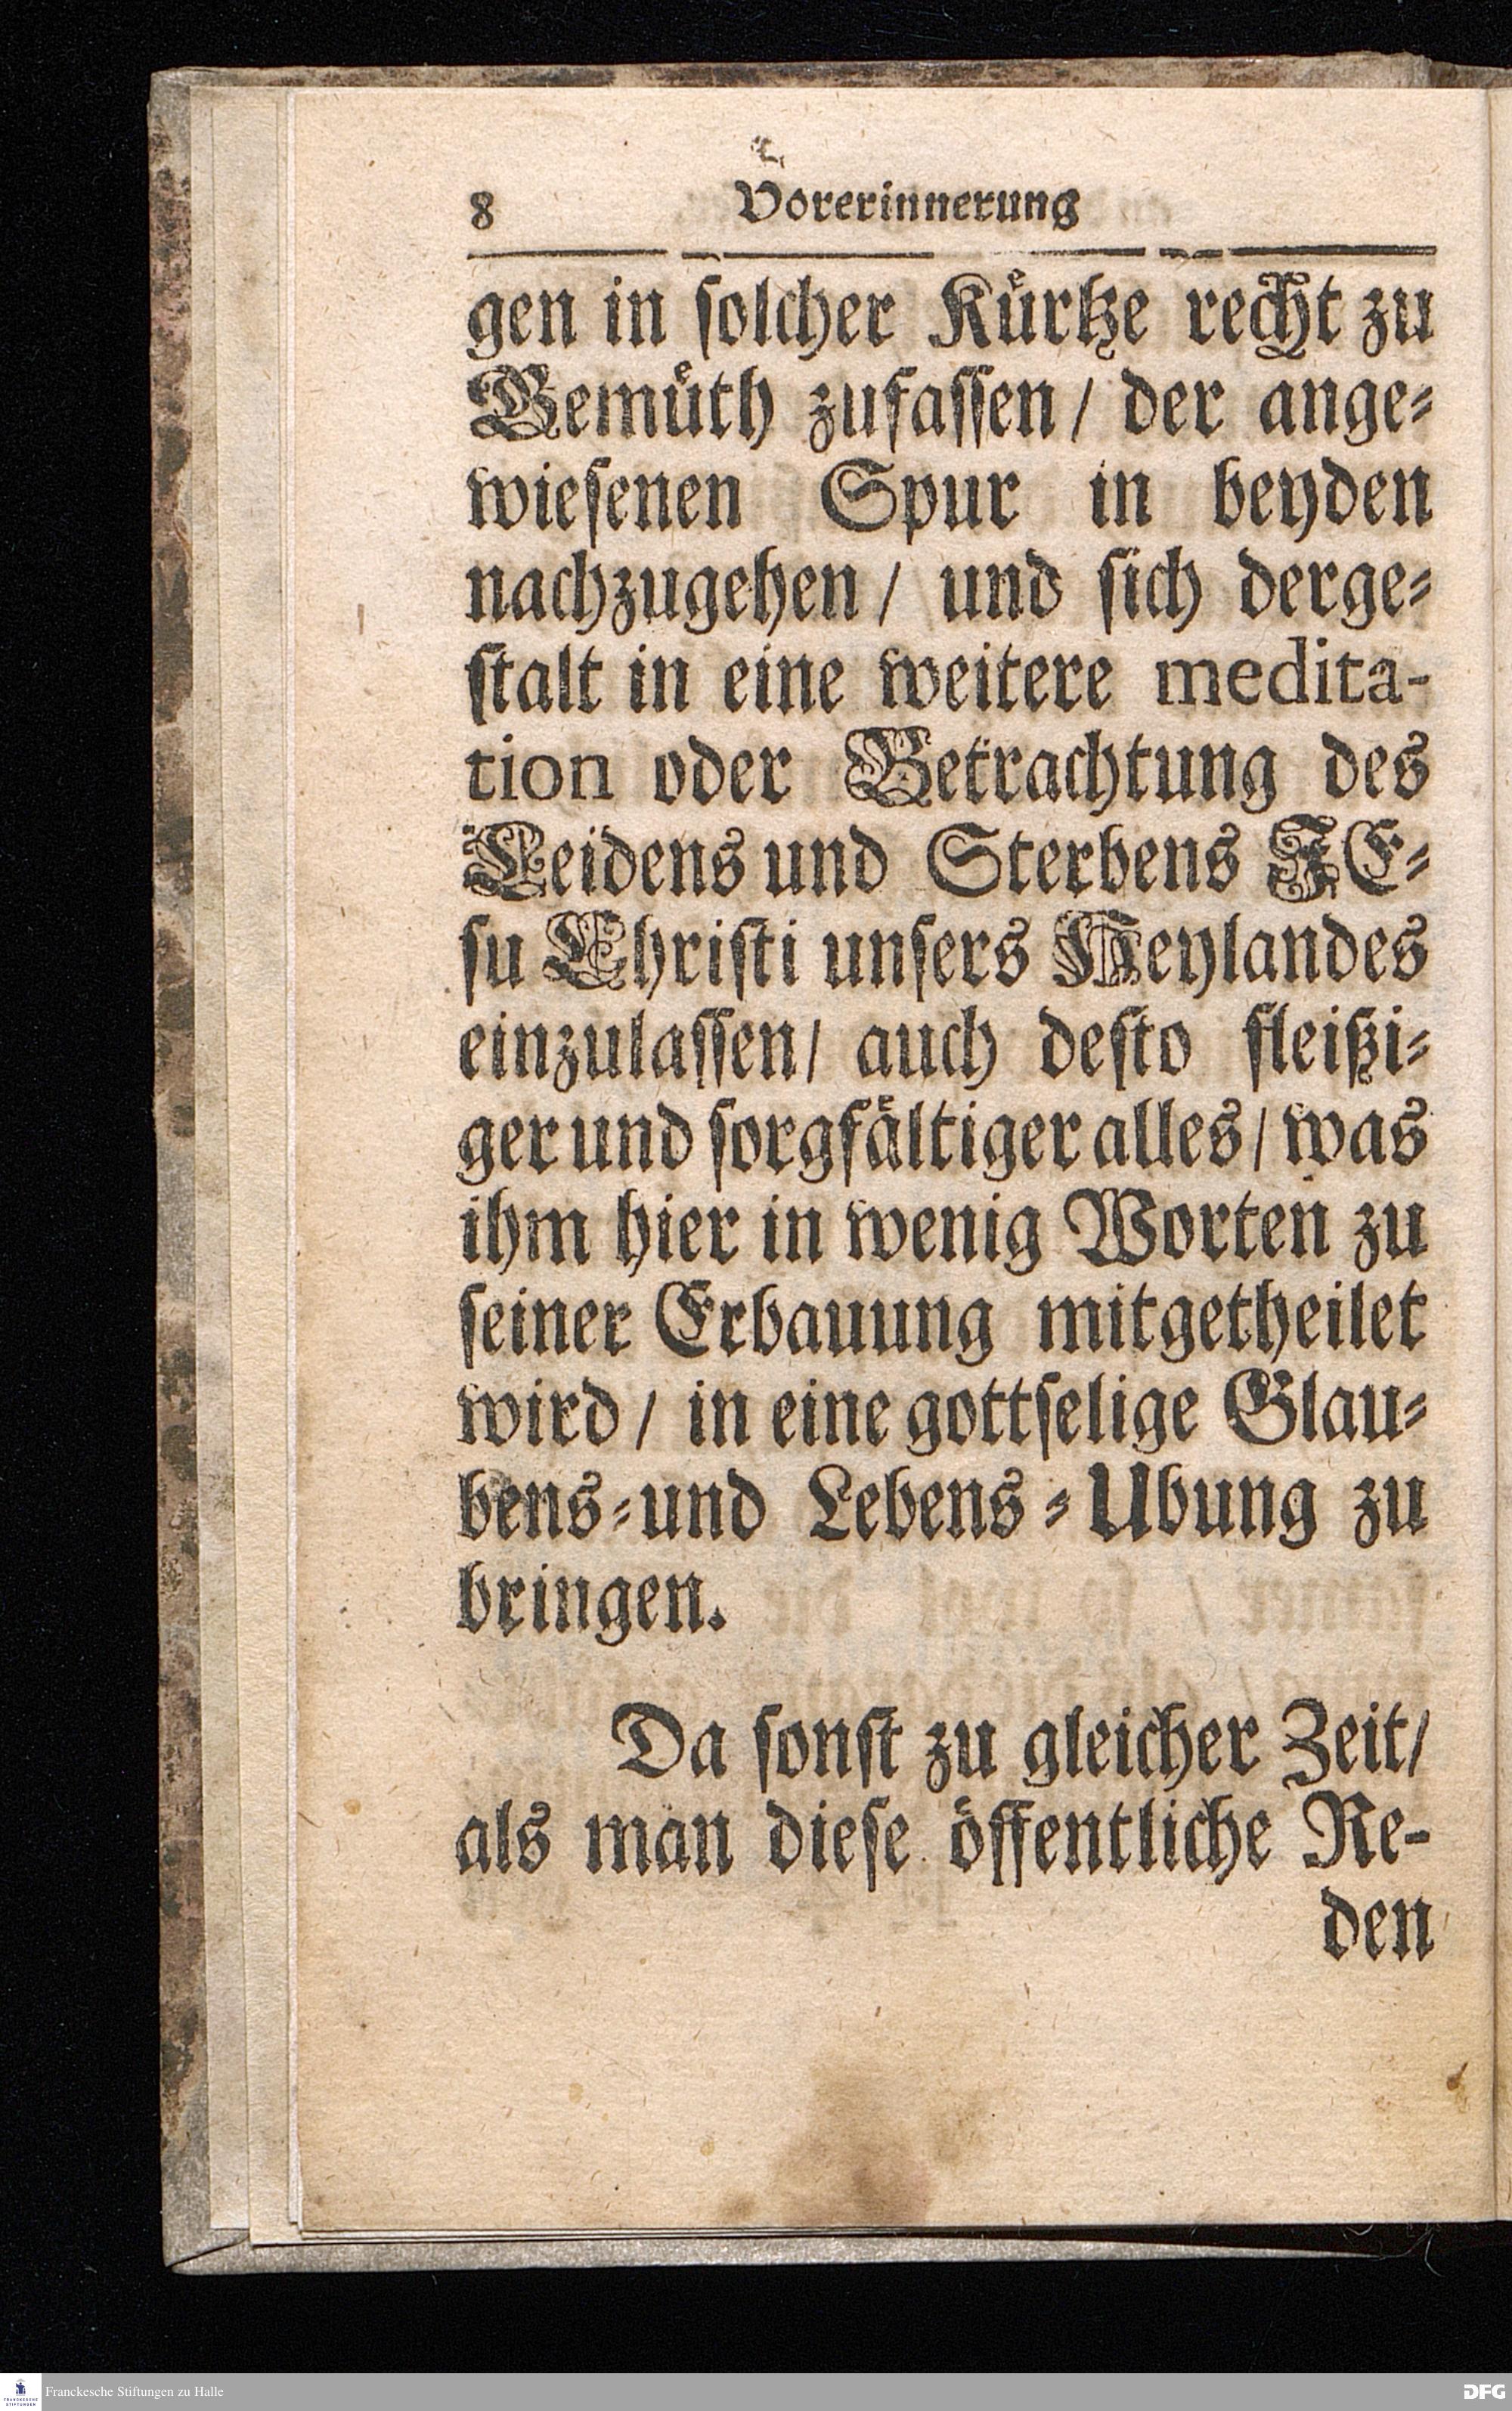 8 Vorerinnerung
gen in ſolcher Kuͤrtze recht zu
Gemuͤth zufaſſen / der ange⸗
wieſenen Spur in beyden
nachzugehen / und ſich derge⸗
ſtalt in eine weitere medita-
tion oder Betrachtung des
Leidens und Sterbens JE⸗
ſu Chriſti unſers Heylandes
einzulaſſen / auch deſto fleißi⸗
ger und ſorgfaͤltiger alles / was
ihm hier in wenig Worten zu
ſeiner Erbauung mitgetheilet
wird / in eine gottſelige Glau⸗
bens⸗und Lebens⸗Ubung zu
bringen.
Da ſonſt zu gleicher Zeit /
als man dieſe oͤffentliche Re-
den
Franckesche Stiftungen zu Halle
FRANCKESCHE
STIFTUNGEN
DFG